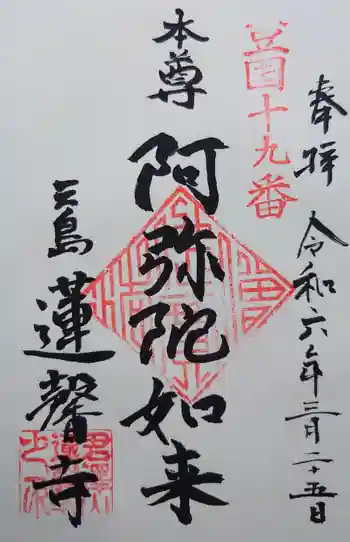 奉拝 令和六年三月二十五日
豆国十九番
本尊
阿弥陀如来
三島 蓮馨寺